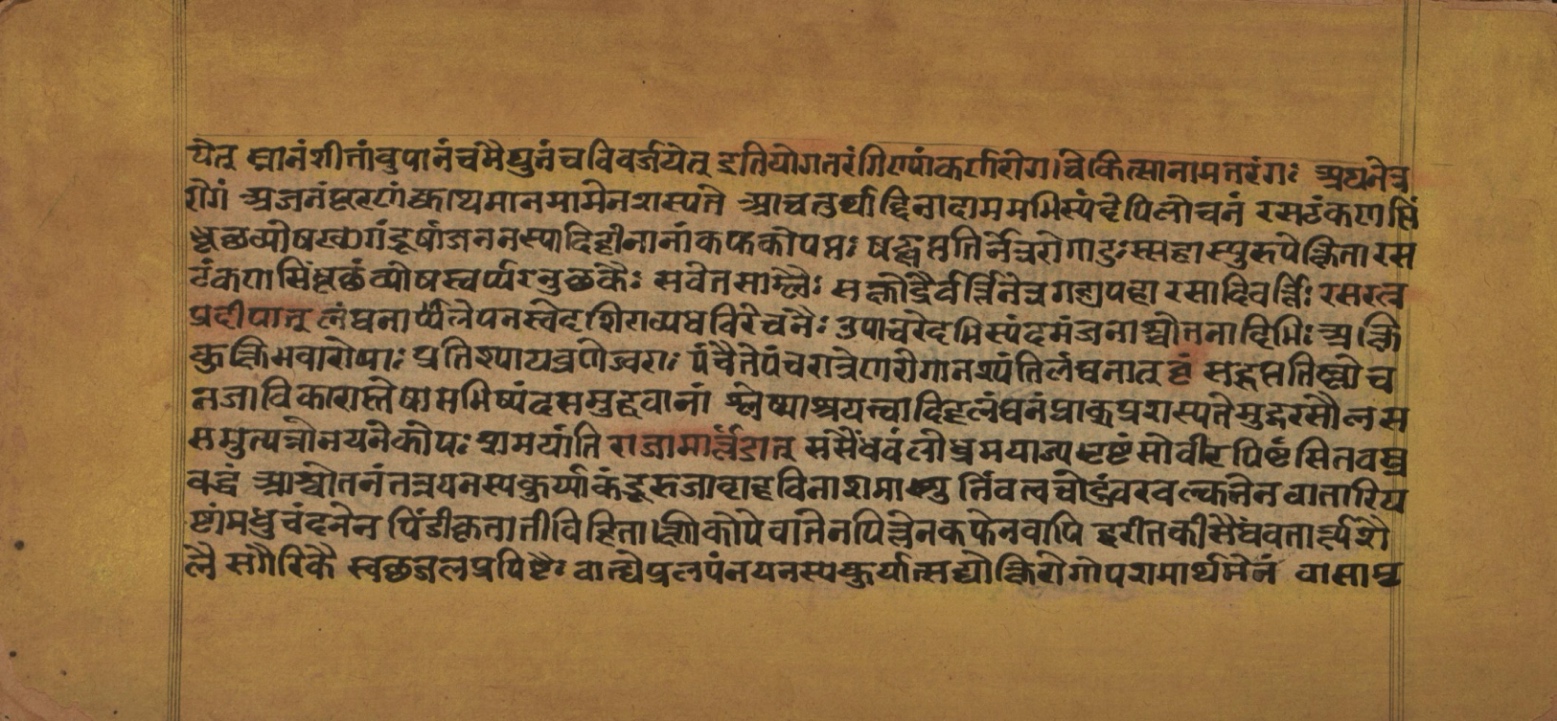 येत् स्नानंशीतांवुपानंचमैथुनंचविवर्जयेत् इतियोगतरंगिण्यांकर्णरोगचिकित्सानामतरंगः अथनेत्र
रोगं अंजनंपूरणंक्वाथमानमामेनशस्यते आचतुर्थाद्दिनादाममभिस्यंदेपिलोचनं रसटंकणसिं
धूछव्योष कफकोपतः षट्सप्ततिर्नेत्ररोगादुःस्सहास्यु रस
टंकणसिंधूछंव्योष सवेतसाम्लैः सक्षौद्रैर्वर्त्तिनेत्रगदापहा रसादिवर्त्तिः रसरत्न
प्रदीपात् लंघनालेपनस्वेदशिराव्यधविरेचनैः उपाचरेदभिस्यंदमंजनाश्चोतनादिभिः अक्षि
कुक्षिभवारोषाः प्रतिश्यायव्रणेज्वराः पंचैतेपंचरात्रेणरोगानश्यंतिलंघनात् वृं सद्सप्ततिर्लोच
नजाविकारास्तेषामभिष्यंदसमुद्भवानां श्लेष्माश्रयत्वादिहलंघनंप्राक्प्रशस्यतेमुद्गरसौलस
समुत्पन्नोनयनेकोपः शमयांति राजामार्त्तंडात् संसैधवंलोध्रमथाज्यभृष्टंसोवीरपिष्टंसितवस्त्र
वद्धं आश्चोतनंतन्नयनस्यकुर्यात्कंडूरुजादाहविनाशमाशु वातारिय
ष्टांमधुचंदनेन पिंडीकृता अक्षिकोपे वातेनपित्तेनकफेनवापि हरीतकीसैधवतार्क्ष्यशै
लै सगैरिकै स्वछजलप्रपिष्टैः वाह्येप्रलेपंनयनस्यकुर्यात्सद्योक्षिरोगोपशमार्थमेनं वासाघ